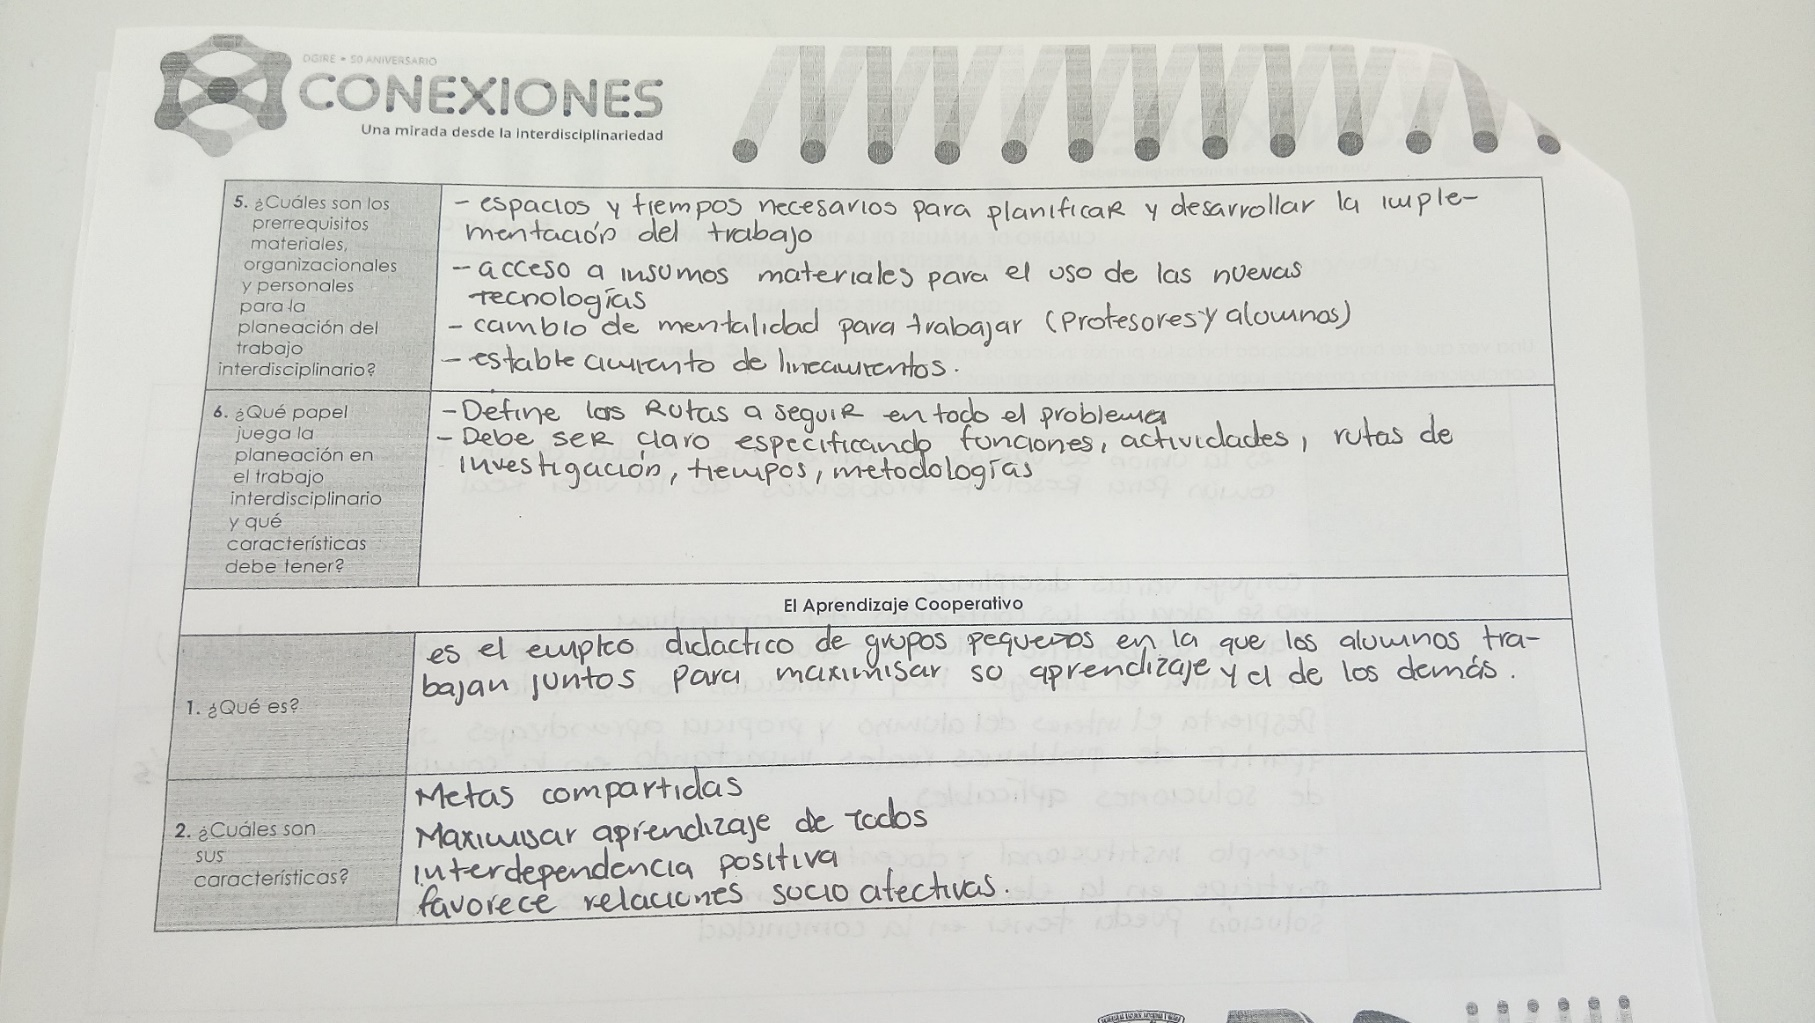 DGIRE • 50 ANIVERSARIO
CONEXIONES
Una mirada desde la interdisciplinariedad
5. ¿Cuáles son los
prerrequisitos
materiales,
organizacionales
y personales
para la
planeación del
trabajo
interdisciplinario?
- espacios y tiempos necesarios para planificar y desarrollar la imple-
mentación del trabajo
- acceso a insumos materiales para el uso de las nuevas
tecnologías
- cambio de mentalidad para trabajar (profesores y alumnos)
- establecimiento de lineamientos.
6. ¿Qué papel
juega la
planeación en
el trabajo
interdisciplinario
y qué
características
debe tener?
- Define las Rutas a seguir en todo el problema
- Debe ser claro especificando funciones, actividades, rutas de
investigación, tiempos, metodologías
El Aprendizaje Cooperativo
1. ¿Qué es?
es el empleo didactico de grupos pequeños en la que los alumnos tra-
bajan juntos para maximisar so aprendizaje y el de los demás.
2. ¿Cuáles son
sus
características?
Metas compartidas
Maximisar aprendizaje de todos
interdependencia positiva
favorece relaciones socio afectivas.